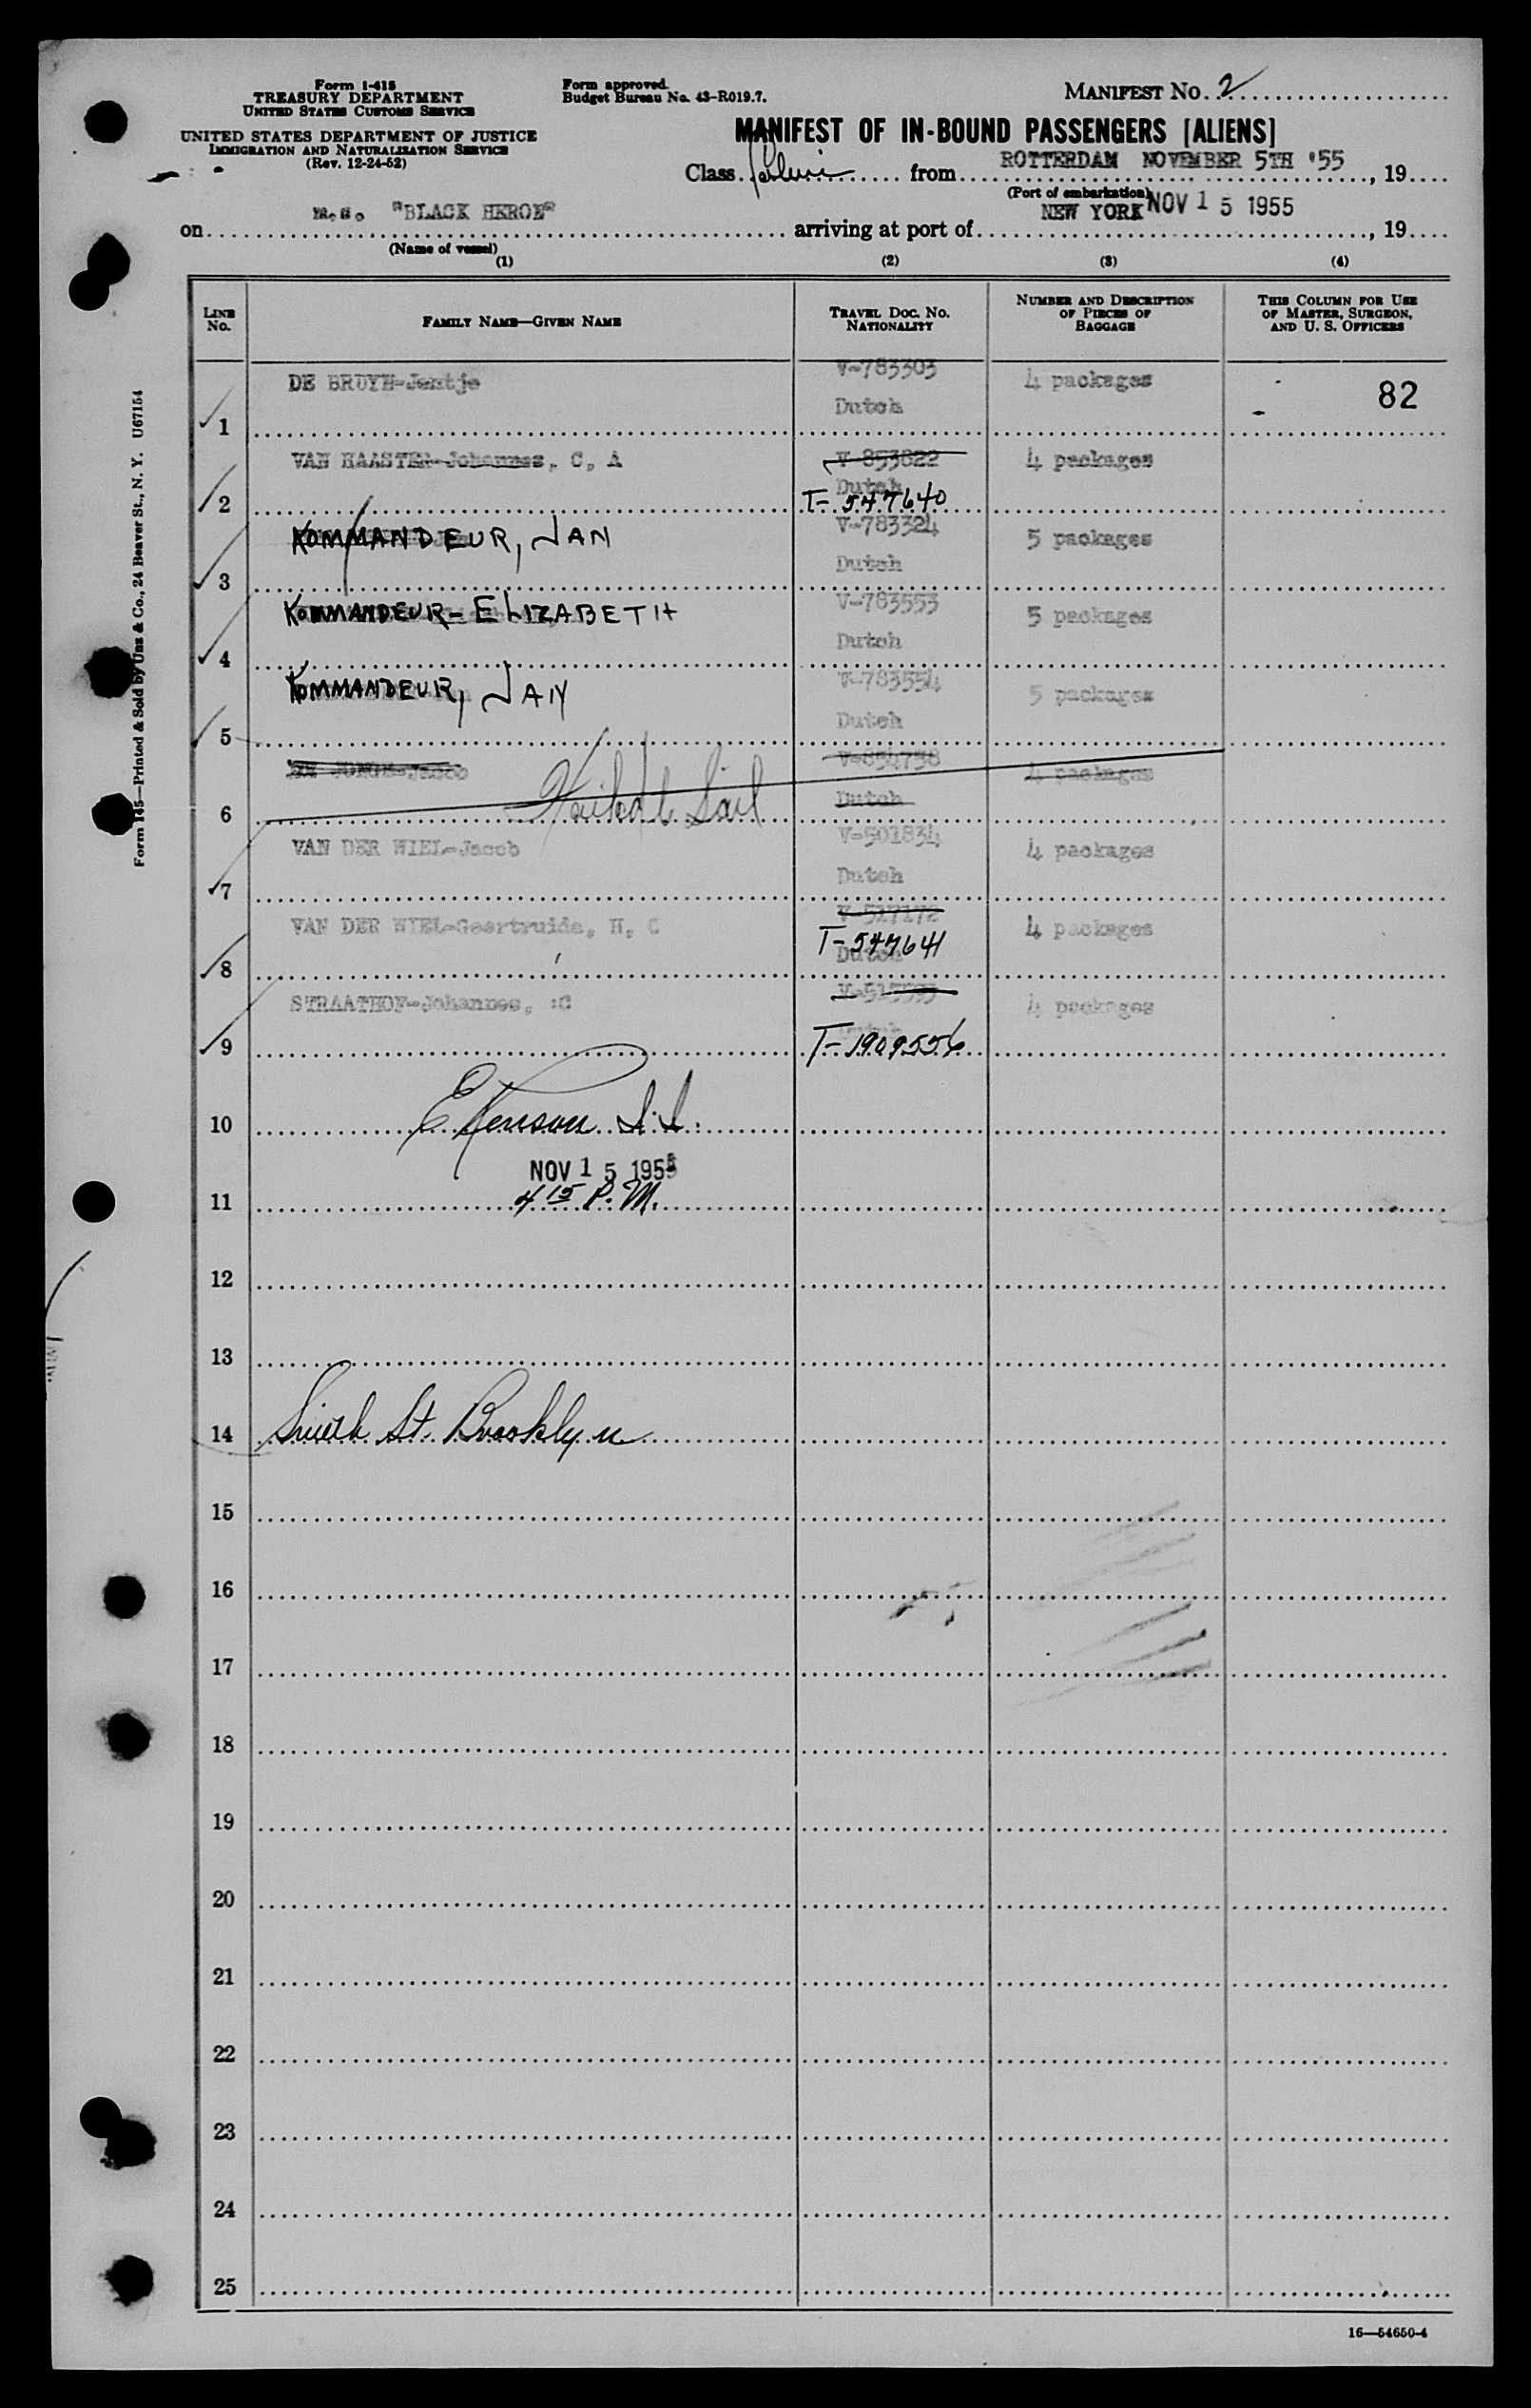 Form I-415
TREASURY DEPARTMENT
UNITED STATES CUSTOMS SERVICE
UNITED STATES DEPARTMENT OF JUSTICE
IMMIGRATION AND NATURALIZATION SERVICE
(Rev. 12-24-52)
Form approved.
Budget Bureau No. 43-R019.7.
MANIFEST No. 2
MANIFEST OF IN-BOUND PASSENGERS [ALIENS]
Class from ROTTERDAM NOVEMBER 5TH '55, 19
(Port of embarkation)
on m.s. "BLACK HERON" arriving at port of NEW YORK NOV 15 1955, 19
(Name of vessel)
(1) (2) (3) (4)
LINE No. FAMILY NAME—GIVEN NAME TRAVEL DOC. No. NATIONALITY NUMBER AND DESCRIPTION OF PIECES OF BAGGAGE THIS COLUMN FOR USE OF MASTER, SURGEON, AND U. S. OFFICERS
1 DE BRUYN-Jentje V-783303 Dutch 4 packages 82
2 VAN HAASTER-Johannes, C, A V-853822 Dutch T-547640 4 packages
3 KOMMANDEUR, JAN V-783324 Dutch 5 packages
4 KOMMANDEUR-ELIZABETH V-783553 Dutch 5 packages
5 KOMMANDEUR, JAN V-783554 Dutch 5 packages
6 DE JONGH-Jacob Failed to Sail V-854738 Dutch 4 packages
7 VAN DER WIEL-Jacob V-501834 Dutch 4 packages
8 VAN DER WIEL-Geertruida, H, C V-517172 T-547641 Dutch 4 packages
9 STRAATHOF-Johannes, :C V-515593 Dutch T-1909556 4 packages
10 E Kenson I.I.
NOV 15 1955
11 4 15 P.M.
12
13
14 Smith St. Brooklyn
15
16
17
18
19
20
21
22
23
24
25
16—54650-4
Form 145—Printed & Sold by Unz & Co., 24 Beaver St., N. Y. U67154